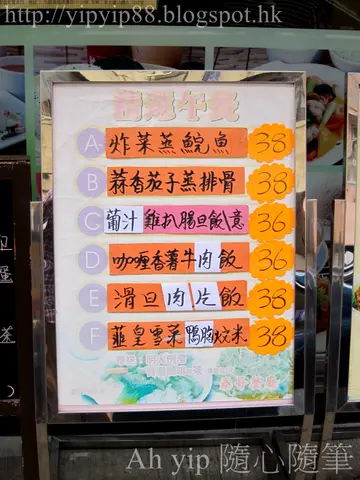 http://yipyip88.blogspot.hk
精選午餐
A 炸菜蒸鯇魚 38
B 蒜香茄子蒸排骨 38
C 葡汁雞扒腸旦飯/意 36
D 咖喱香薯牛肉飯 36
E 滑旦肉片飯 38
F 韮皇雪菜鴨胸炆米 38
Ah yip 隨心隨筆